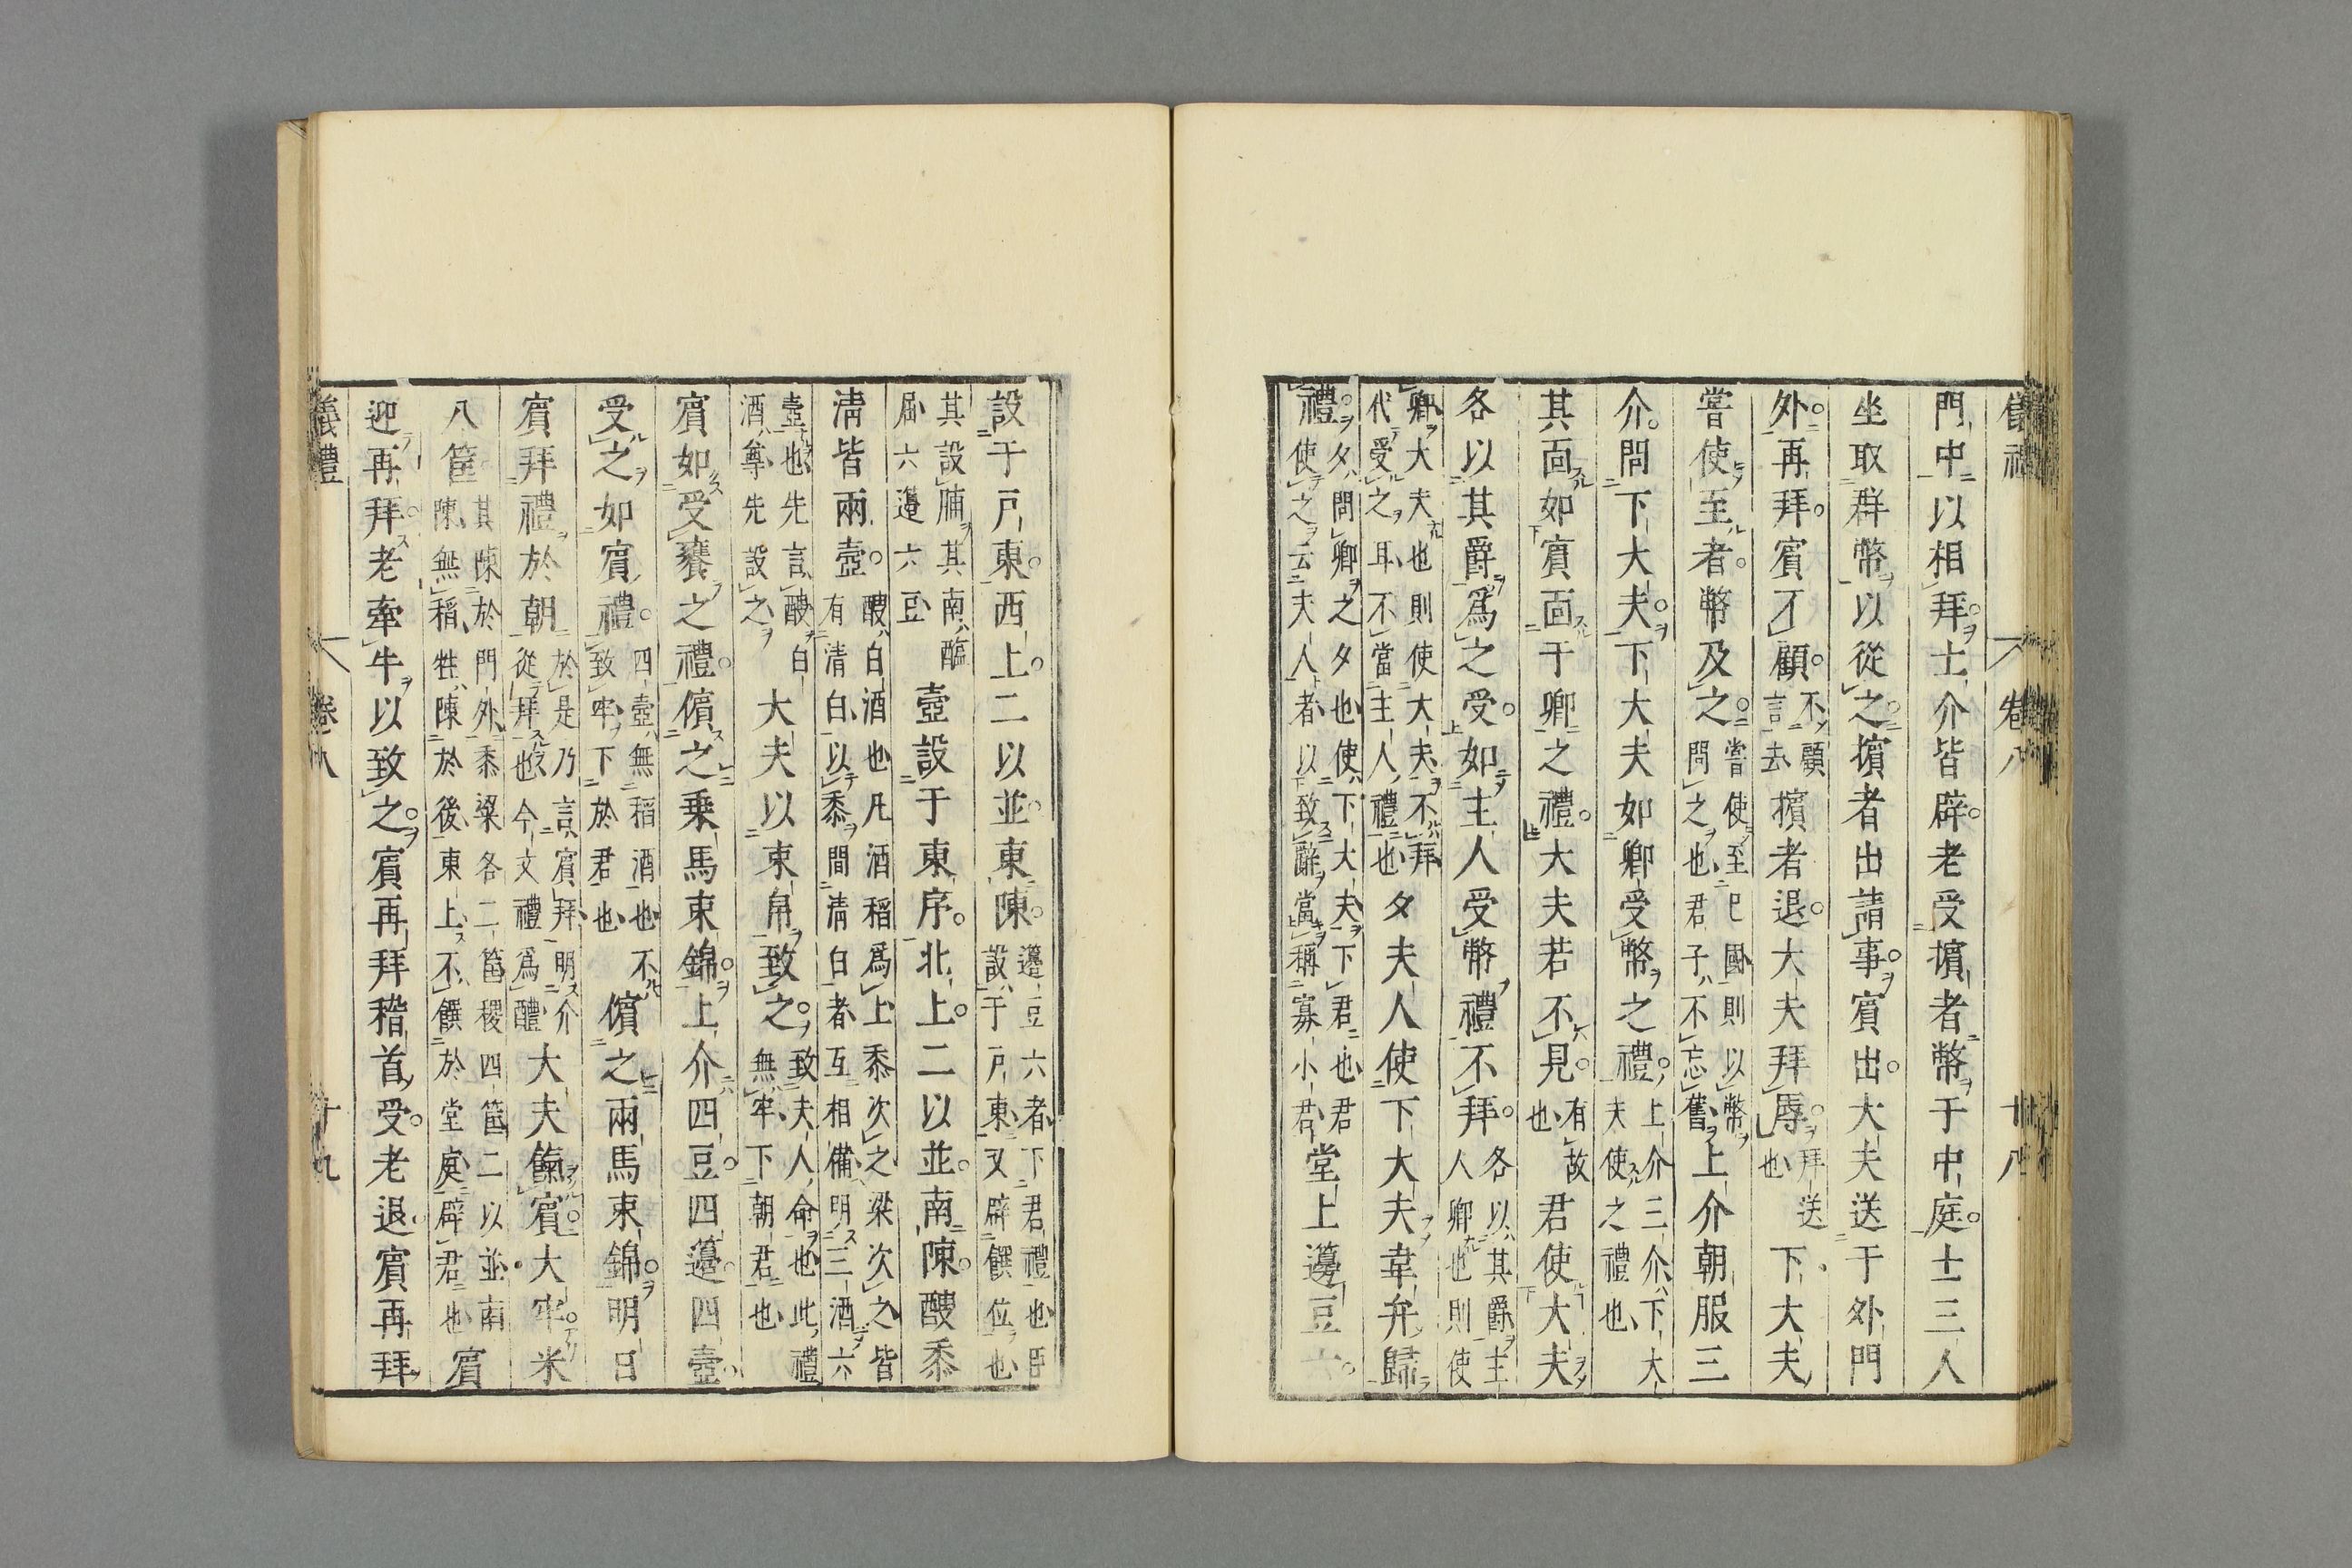 儀禮 卷八 十八
門中以相拜士介皆辟老受擯者幣于中庭士三人
坐取群幣以從之擯者出請事賓出大夫送于外門
外再拜賓不顧不顧言去擯者退大夫拜辱拜送也下大夫
嘗使至者幣及之嘗使至已國則以幣問之也君子不忘舊上介朝服三
介問下大夫下大夫如卿受幣之禮上介三介下大夫使之禮也
其面如賓面于卿之禮大夫若不見有故也君使大夫
各以其爵爲之受如主人受幣禮不拜各以其爵主人卿也則使
卿大夫也則使大夫不拜代受之耳不當主人禮也夕夫人使下大夫韋弁歸
禮夕問卿之夕也使下大夫下君也君使之云夫人者以致辭當稱寡小君堂上籩豆六
設于戶東西上二以並東陳籩豆六者下君禮也臣設于戶東又辟饌位也
其設脯其南醢屈六籩六豆壺設于東序北上二以並南陳醙黍
清皆兩壺醙白酒也凡酒稻爲上黍次之粱次之皆有清白以黍間清白者互相備明三酒六
壺也先言醙白酒尊先設之大夫以束帛致之致夫人命也此禮無牢下朝君也
賓如受饔之禮儐之乘馬束錦上介四豆四籩四壺
受之如賓禮四壺無稻酒也不致牢下於君也儐之兩馬束錦明日
賓拜禮於朝於是乃言賓拜明介從拜也今文禮爲醴大夫餼賓大牢米
八筐其陳於門外黍粱各二筐稷四筐二以並南陳無稻牲陳於後東上不饌於堂庭辟君也賓
迎再拜老牽牛以致之賓再拜稽首受老退賓再拜
儀禮 卷八 十九